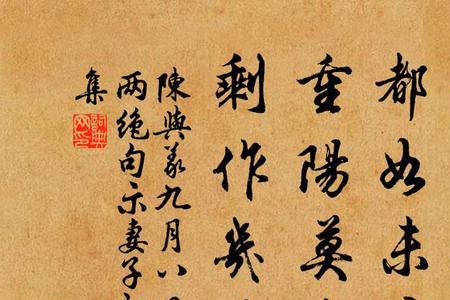 都如未
重陽莫
剩作幾
陳與義九月八
两绝句示妻子
集